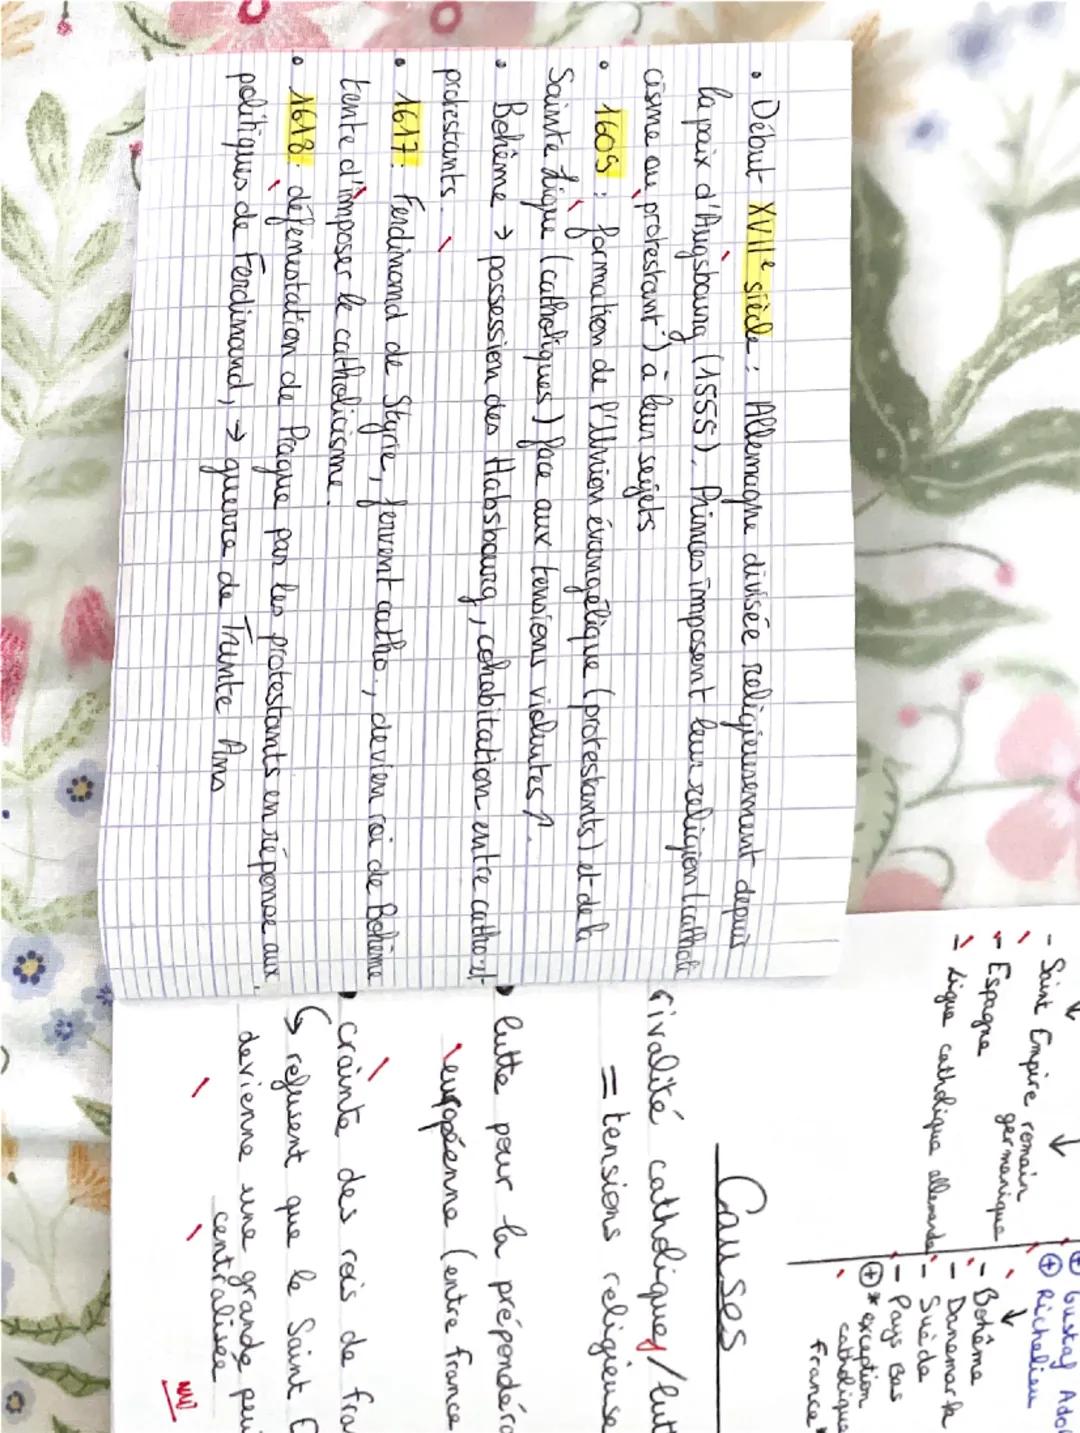 • Début XVIIe siècle : Allemagne divisée religieusement depuis
la paix d'Augsbourg (1555). Princes imposent leur religion (catholi
cisme ou protestant) à leur sujets
• 1609 : formation de l'Union évangélique (protestants) et de la
Sainte Ligue (catholiques) face aux tensions violentes ↗.
• Bohême → possession des Habsbourg, cohabitation entre catho et
protestants.
• 1617 : Ferdinand de Styrie, fervent catho., devien roi de Bohême
tente d'imposer le catholicisme.
• 1618 : défenestation de Prague par les protestants en réponse aux
politiques de Ferdinand, → guerre de Trente Ans
- Saint Empire romain
germanique
- Espagne
- Ligue catholique allemande
⊕ Gustaf Adol
⊕ Richelieu
- Bohême
- Danemark
- Suède
- Pays Bas
⊕ * exception
catholique
France
Causes
rivalité catholiques/lut
= tensions religieuse
• lutte pour la prépondéra
européenne (entre France
• crainte des rois de fra
↳ refusent que le Saint E
devienne une grande pui
centralisée